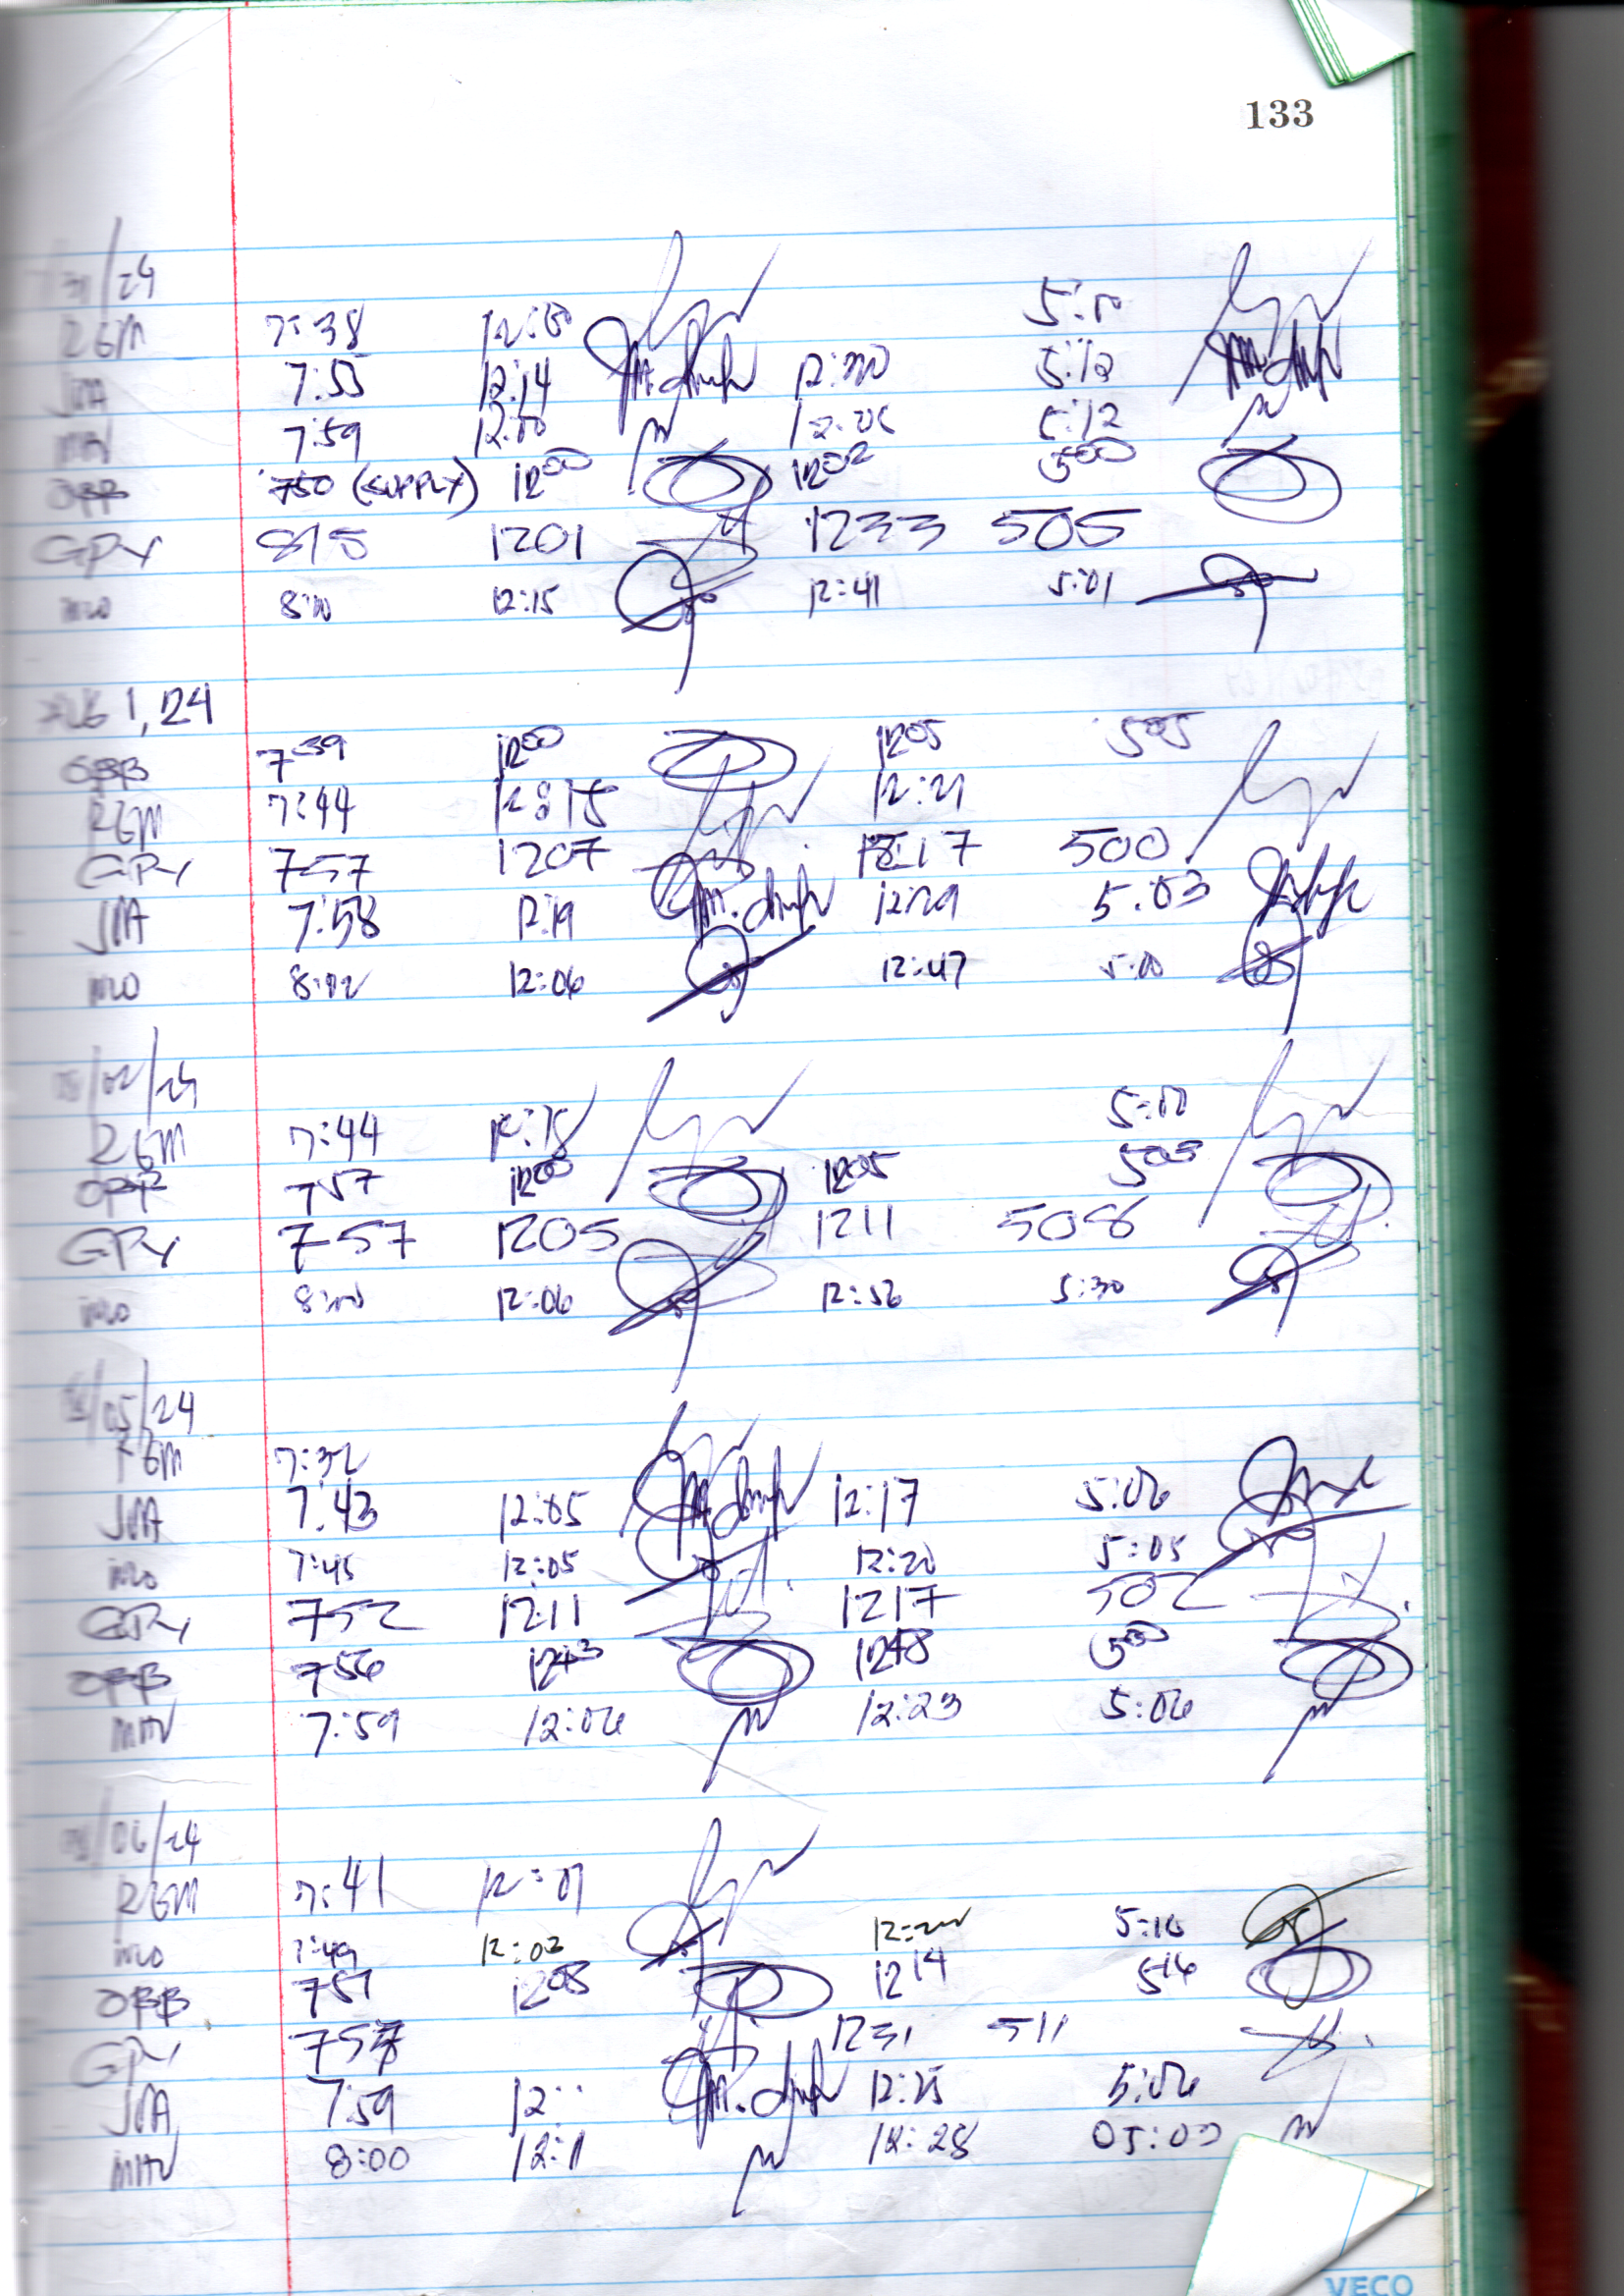 133
7/31/24
RGM 7:38 12:00 5:10
JMA 7:55 12:14 12:30 5:12
MAV 7:59 12:00 12:06 5:12
OBB 750 (SUPPLY) 1200 1202 500
GPY 815 1201 1233 505
8:10 12:15 12:41 5:01
AUG 1, 24
OBB 739 1200 1205 505
RGM 7:44 12:15 12:21
GPY 757 1207 1217 500
JMA 7:58 12:19 12:29 5:03
8:02 12:06 12:47 5:00
08/02/24
RGM 7:44 12:15 5:10
OBB 757 1200 1205 505
GPY 757 1205 1211 508
8:00 12:06 12:56 5:30
08/05/24
RGM 7:32
JMA 7:43 12:05 12:17 5:06
7:45 12:05 12:20 5:05
GPY 752 1211 1217 502
OBB 756 1243 1248 500
MAV 7:59 12:06 12:23 5:06
08/06/24
RGM 7:41 12:01
7:49 12:02 5:16
OBB 751 1208 1214 516
GPY 1231 511
JMA 7:59 12: 12:25 5:06
MAV 8:00 12:11 12:28 05:00
VECO